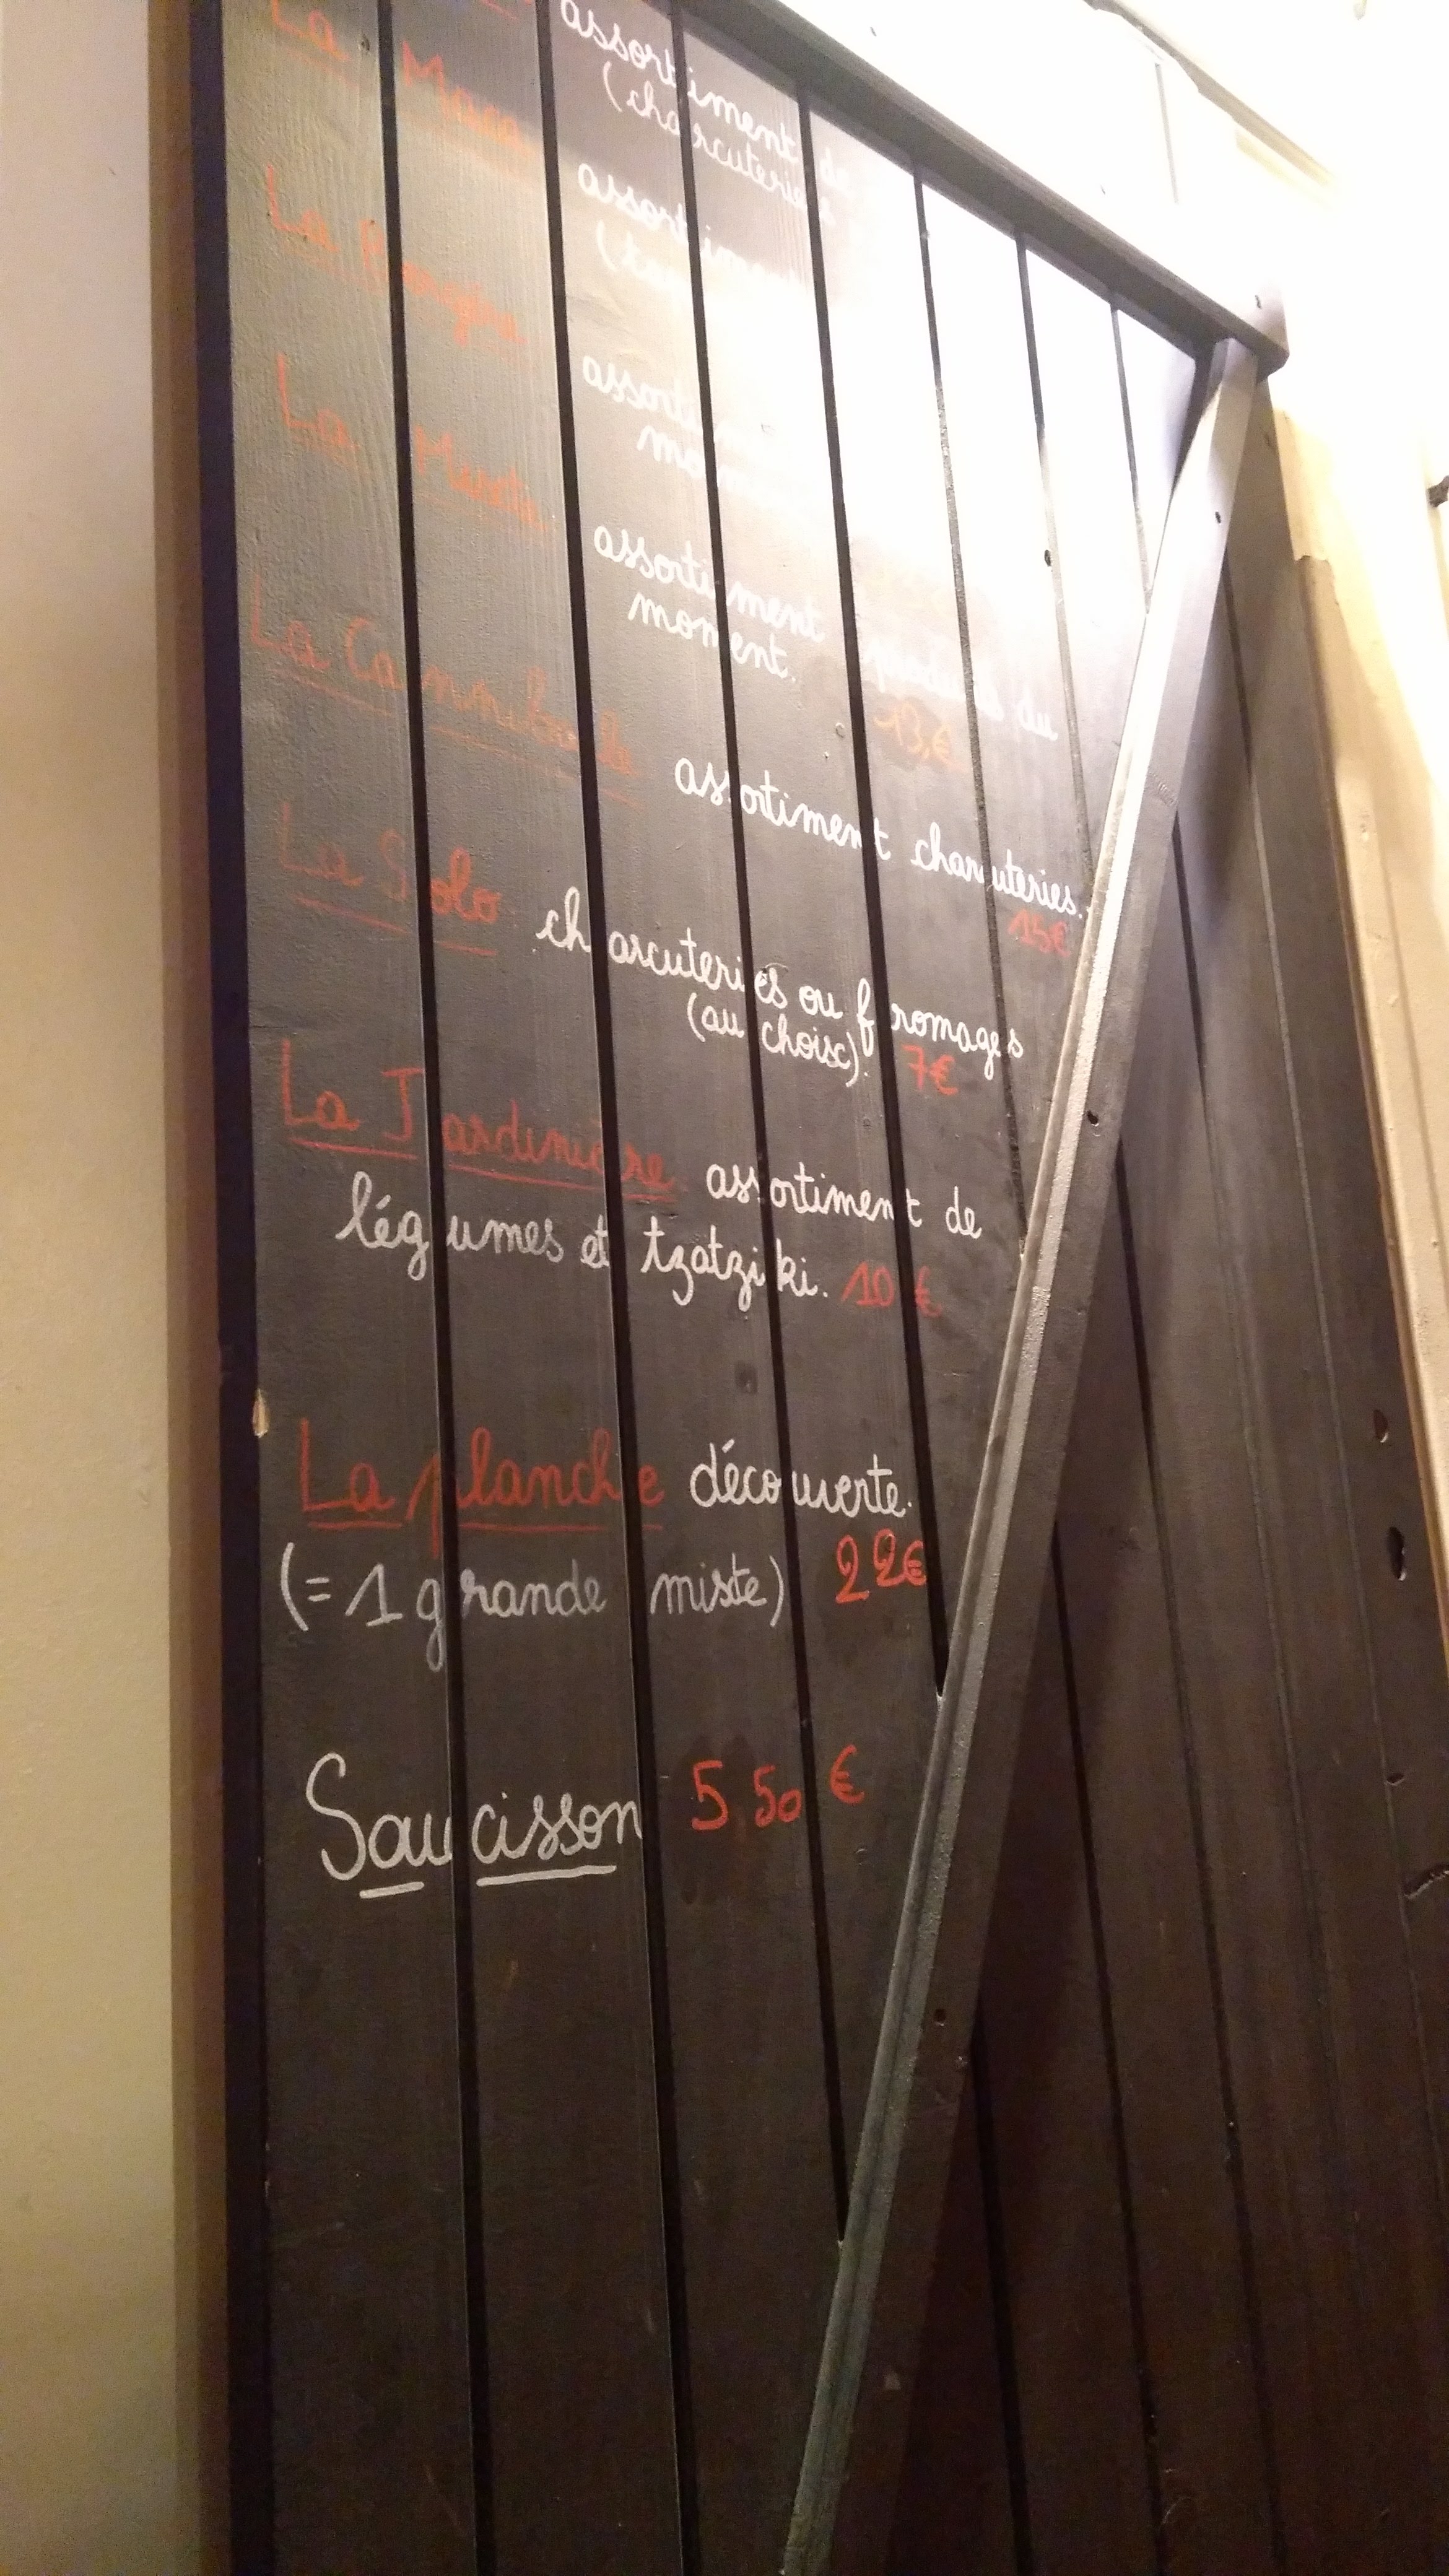 La
assortiment de
(charcuteries
La
assortiment
La Mixte
assorti
assortiment produits du
moment.
13,€
La Cannibale assortiment charcuteries.
15€
La Solo charcuteries ou fromages
(au choix). 7€
La Jardinière assortiment de
légumes et tzatziki. 10€
La planche découverte.
(=1 grande mixte) 22€
Saucisson 5,50 €